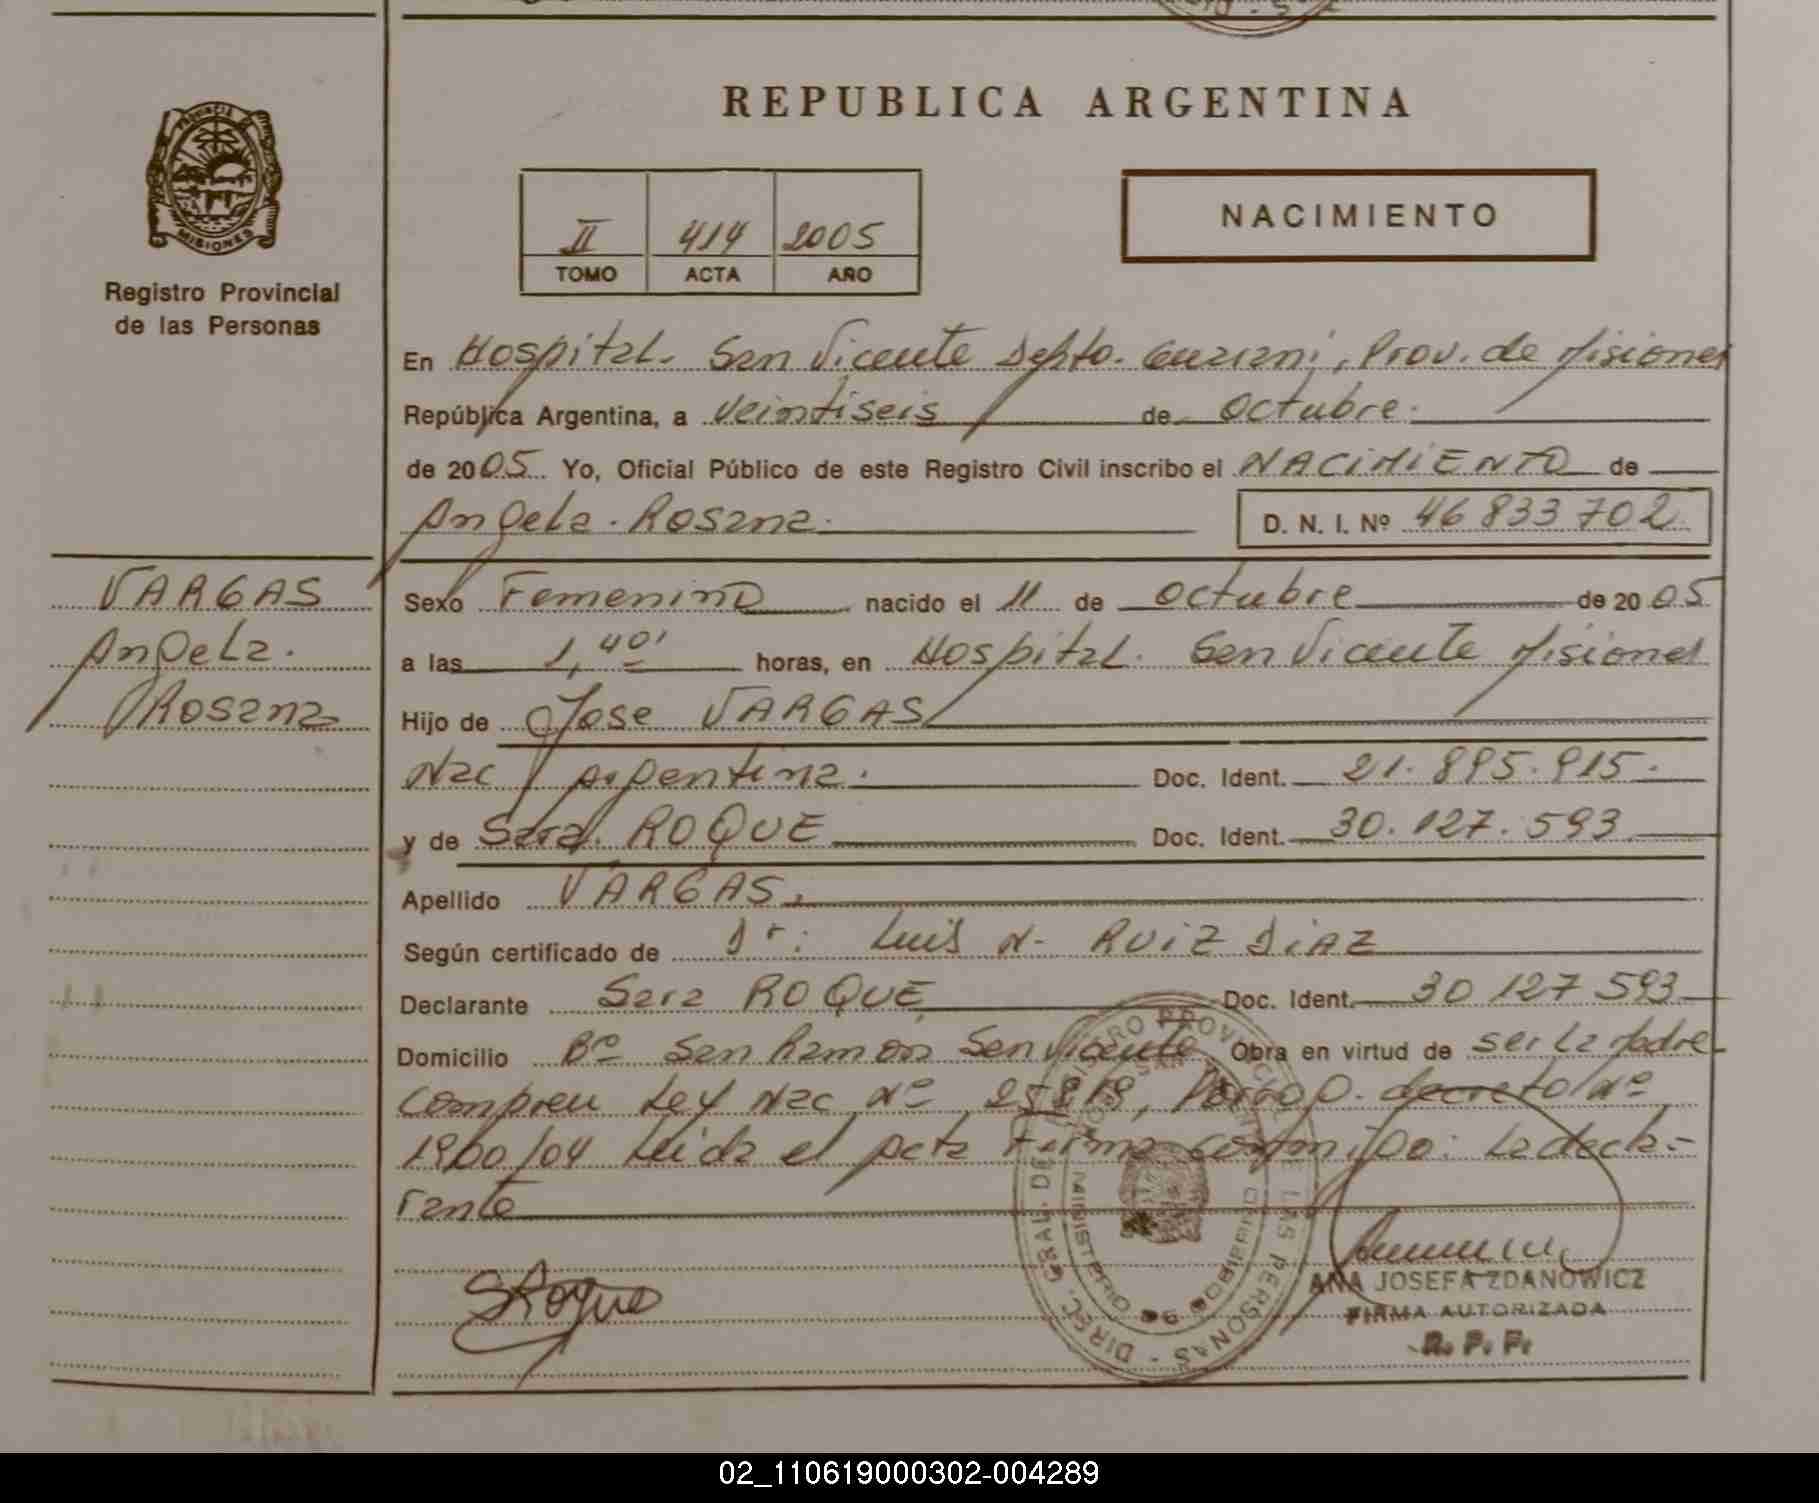 REPUBLICA ARGENTINA
PROVINCIA DE
MISIONES
Registro Provincial
de las Personas
II 414 2005
TOMO ACTA AÑO
NACIMIENTO
En Hospital. San Vicente Depto. Guarani, Prov. de Misiones
República Argentina, a Veintiseis de Octubre.
de 2005 Yo, Oficial Público de este Registro Civil inscribo el NACIMIENTO de
Angela. Rosana.
D. N. I. Nº 46 833 702
VARGAS
Angela.
Rosana
Sexo Femenino nacido el 11 de octubre de 2005
a las 1,40' horas, en Hospital. San Vicente Misiones
Hijo de Jose VARGAS
Nac Argentina. Doc. Ident. 21.895.915.
y de Sara. ROQUE Doc. Ident. 30.127.593
Apellido VARGAS.
Según certificado de Dr: Luis N. RUIZ DIAZ
Declarante Sara ROQUE Doc. Ident. 30 127 593
Domicilio Bº San Ramon San Vicente Obra en virtud de ser la Madre
Ley Nac Nº decreto Nº
/04 Leida el acta Firma conmigo: La decla-
rante
SRoque
DIREC. GRAL. DE REGISTRO PROVINCIAL DE LAS PERSONAS
MINISTERIO DE GOBIERNO
ANA JOSEFA ZDANOWICZ
FIRMA AUTORIZADA
R. P. P.
02_110619000302-004289